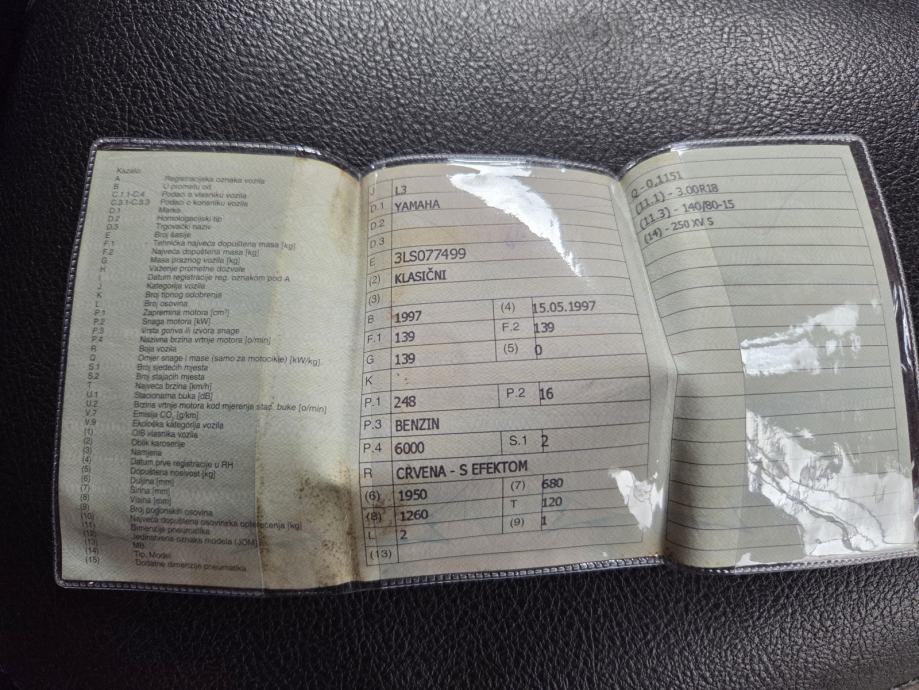 Kazalo:
A Registracijska oznaka vozila
B U prometu od
C.1.1-C.4 Podaci o vlasniku vozila
C.3.1-C.3.3 Podaci o korisniku vozila
D.1 Marka
D.2 Homologacijski tip
D.3 Trgovački naziv
E Broj šasije
F.1 Tehnička najveća dopuštena masa [kg]
F.2 Najveća dopuštena masa [kg]
G Masa praznog vozila [kg]
H Važenje prometne dozvole
I Datum registracije reg. oznakom pod A
J Kategorija vozila
K Broj tipnog odobrenja
L Broj osovina
P.1 Zapremina motora [cm³]
P.2 Snaga motora [kW]
P.3 Vrsta goriva ili izvora snage
P.4 Nazivna brzina vrtnje motora [o/min]
R Boja vozila
Q Omjer snage i mase (samo za motocikle) [kW/kg]
S.1 Broj sjedećih mjesta
S.2 Broj stajaćih mjesta
T Najveća brzina [km/h]
U.1 Stacionarna buka [dB]
U.2 Brzina vrtnje motora kod mjerenja stac. buke [o/min]
V.7 Emisija CO₂ [g/km]
V.9 Ekološka kategorija vozila
(1) OIB vlasnika vozila
(2) Oblik karoserije
(3) Namjena
(4) Datum prve registracije u RH
(5) Dopuštena nosivost [kg]
(6) Duljina [mm]
(7) Širina [mm]
(8) Visina [mm]
(9) Broj pogonskih osovina
(10) Najveća dopuštena osovinska opterećenja [kg]
(11) Dimenzije pneumatika
(12) Jedinstvena oznaka modela (JOM)
(13) MB
(14) Tip, Model
(15) Dodatne dimenzije pneumatika
J L3
D.1 YAMAHA
D.2
D.3
E 3LS077499
(2) KLASIČNI
(3)
B 1997 (4) 15.05.1997
F.1 139 F.2 139
G 139 (5) 0
K
P.1 248 P.2 16
P.3 BENZIN
P.4 6000 S.1 2
R CRVENA - S EFEKTOM
(6) 1950 (7) 680
(8) 1260 T 120
L 2 (9) 1
(13)
Q - 0,1151
(11.1) - 3.00R18
(11.3) - 140/80-15
(14) - 250 XV S